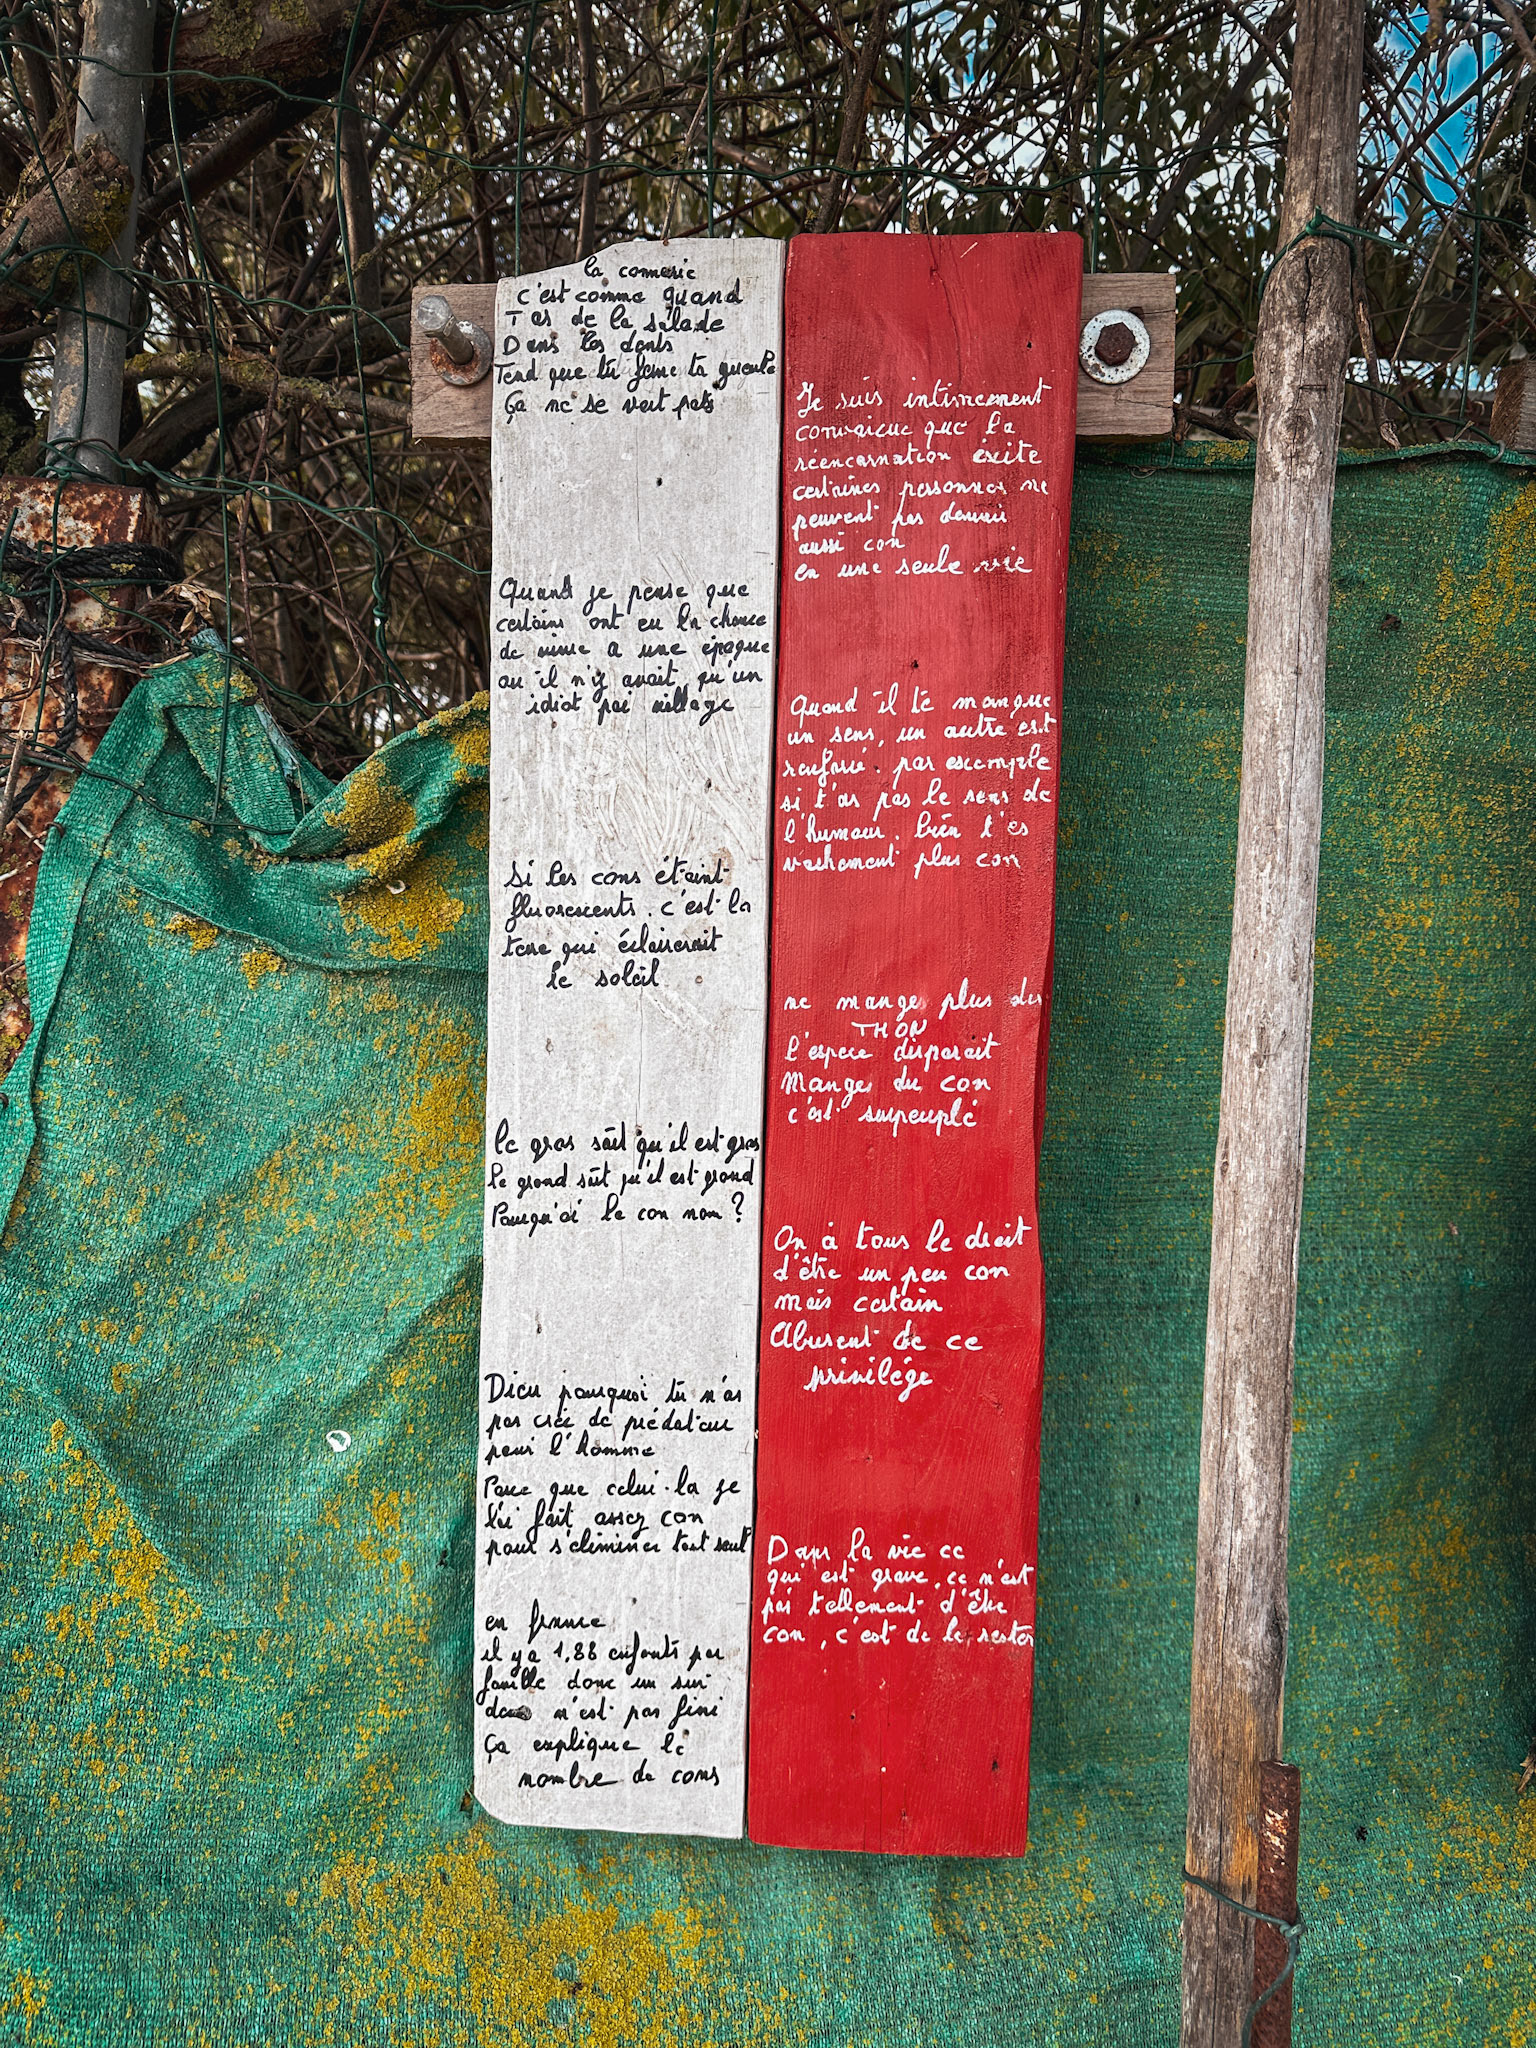 la connerie
c'est comme quand
Tas de la salade
Dans les dents
Tend que tu ferme ta gueule
Ça ne se voit pas
Quand je pense que
certains ont eu la chance
de vivre a une époque
ou il n'y avait qu'un
idiot par village
Si les cons étaint
fluorescents. c'est la
terre qui éclairerait
le soleil
le gros sait qu'il est gros
le grand sait qu'il est grand
Pourqu'oi le con non ?
Dieu pourquoi tu n'as
pas crée de prédateur
pour l'homme
Parce que celui-la je
l'ai fait assez con
pour s'éliminer tout seul
en france
il y a 1,88 enfants par
famille donc un sur
deux n'est pas fini
Ça explique le
nombre de cons
Je suis intimement
convaicue que la
réencarnation éxite
certaines personnes ne
peuvent pas devenir
aussi con
en une seule vie
Quand il te manque
un sens, un autre est
renforcé. par escemple
si t'as pas le sens de
l'humour. bien t'es
vachement plus con
ne mangez plus des
THON
l'espece disparait
Mangez du con
c'est surpeuplé
On à tous le droit
d'être un peu con
mais certain
Abusent de ce
privilége
Dans la vie ce
qui est grave, ce n'est
pas tellement d'être
con, c'est de le rester